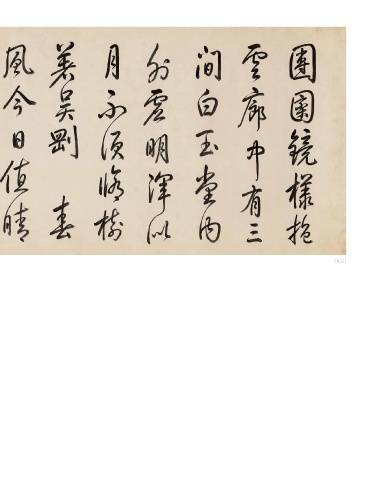 團圞鏡樣抱
雲廊中有三
間白玉堂內
外虛明渾似
月不須脩樹
著吳剛 春
風今日值晴